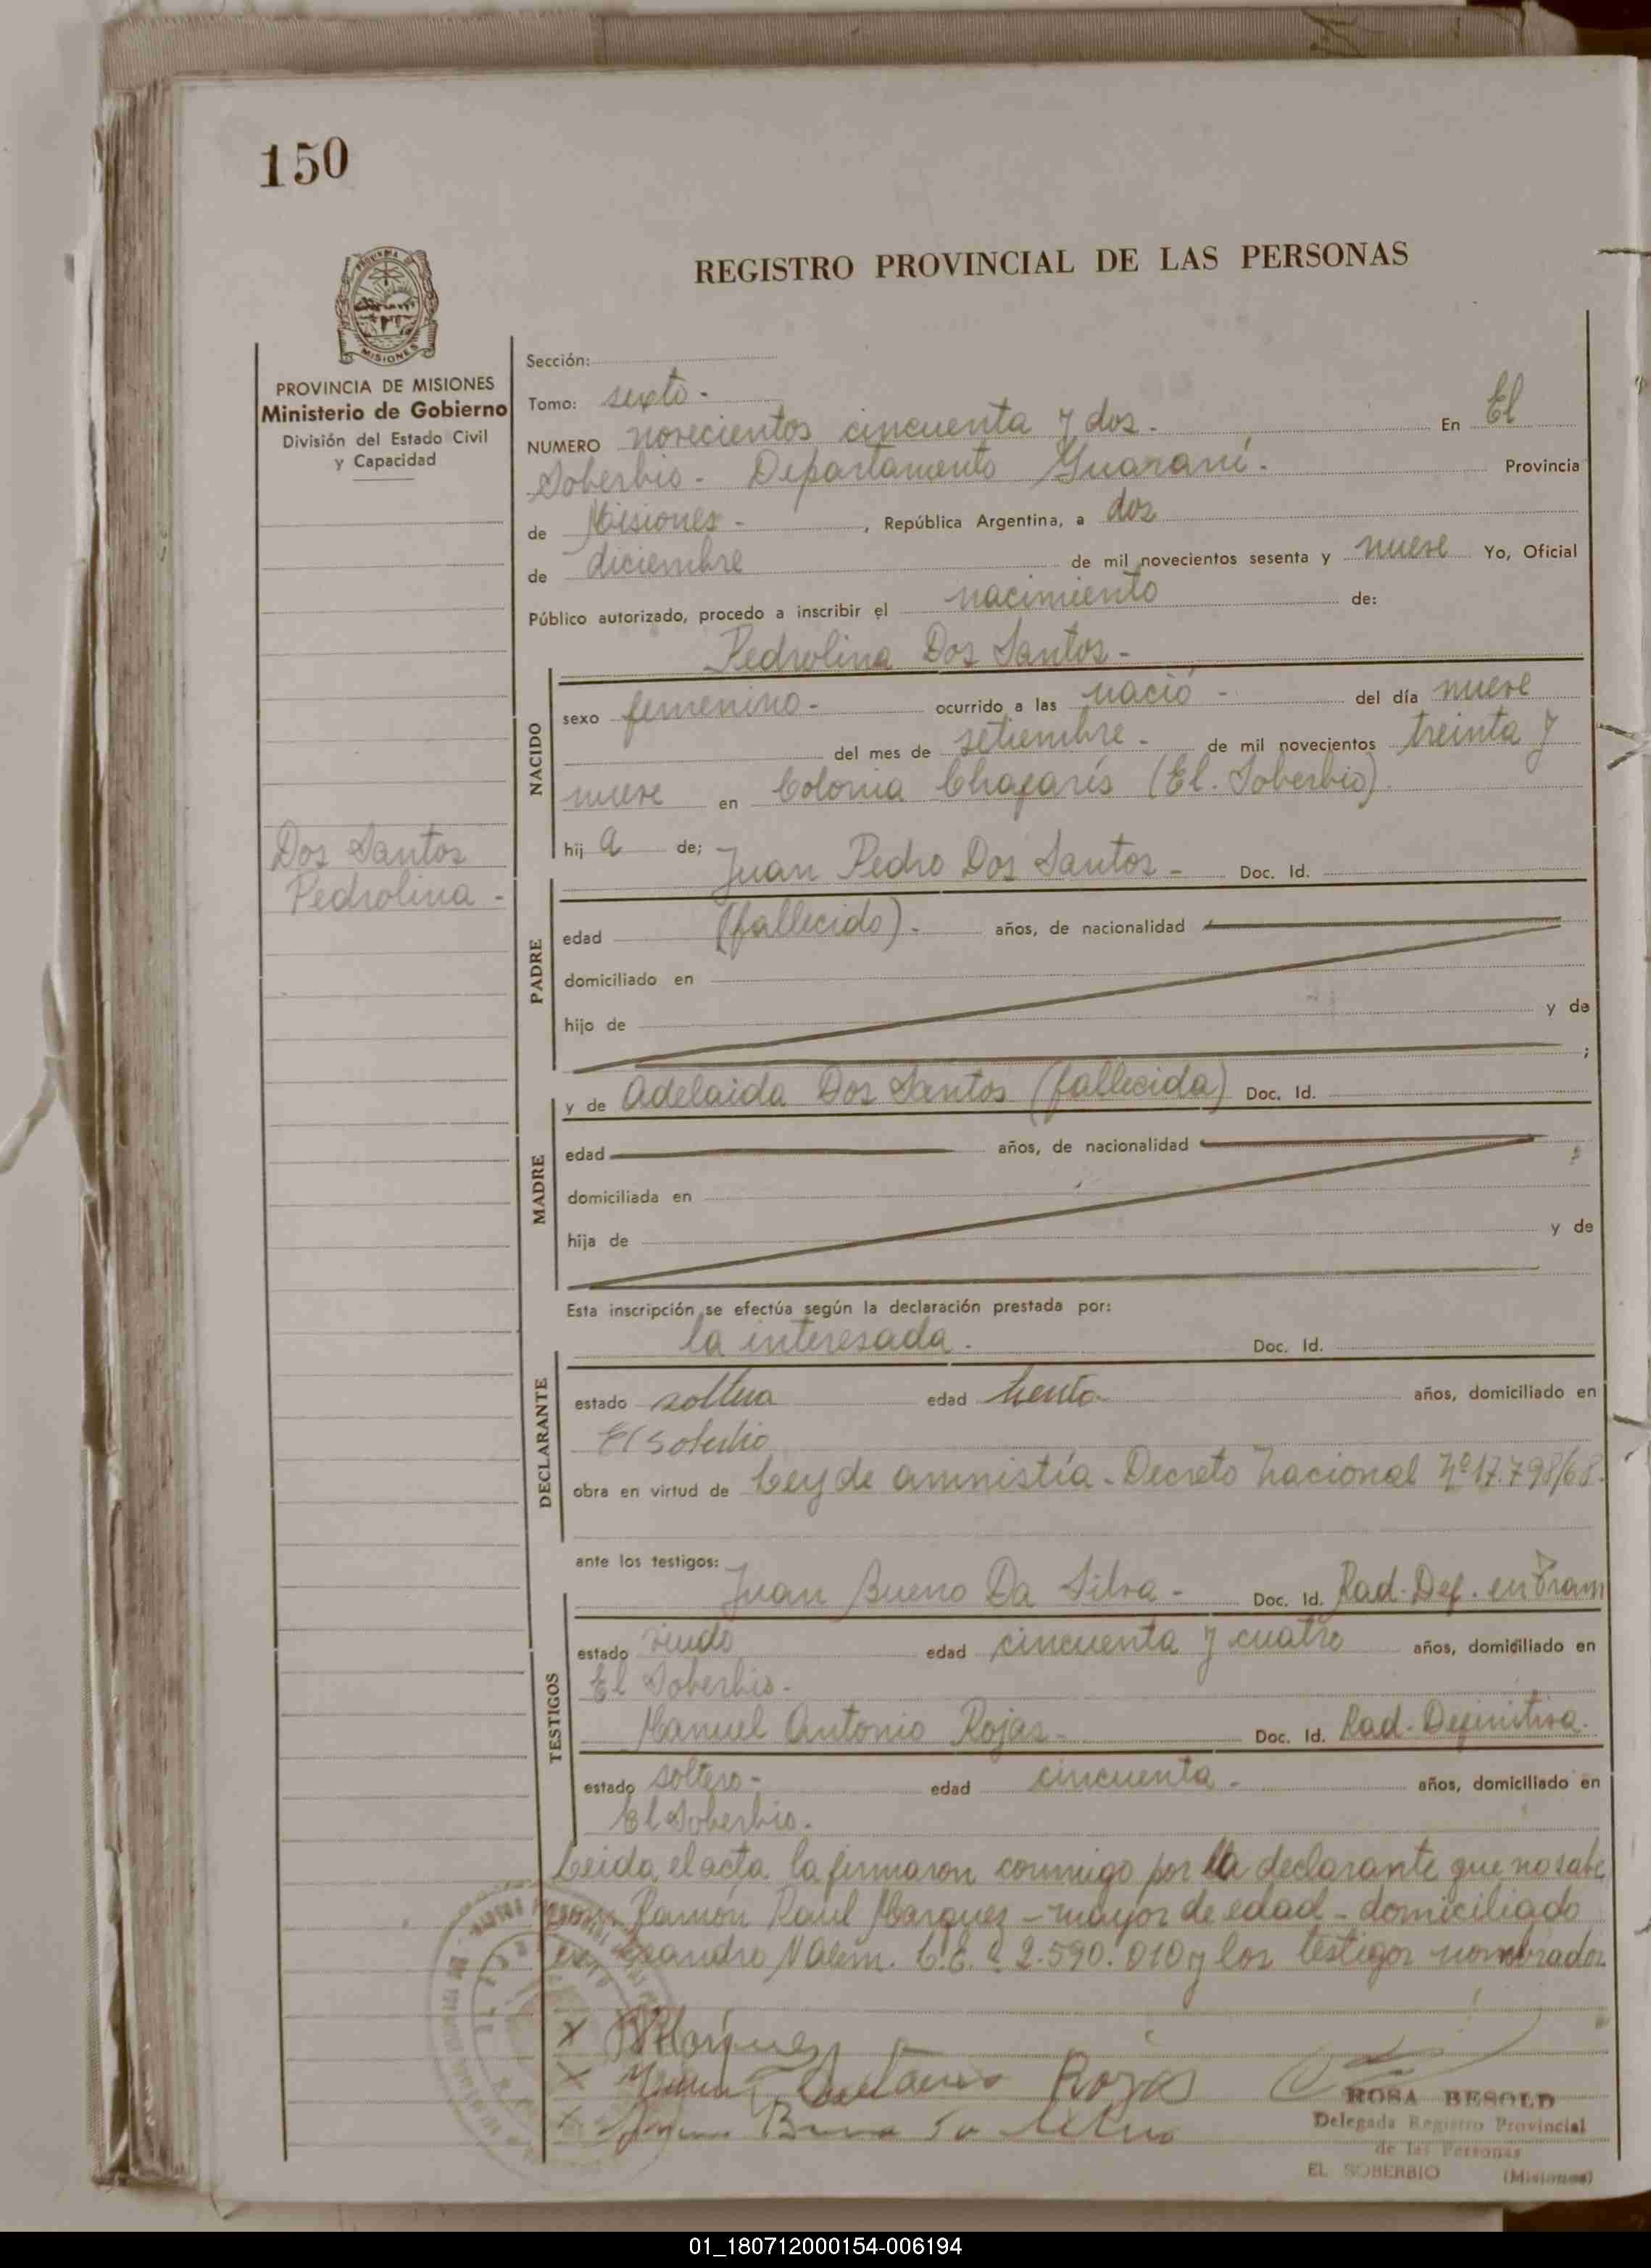 150
REGISTRO PROVINCIAL DE LAS PERSONAS
MISIONES
PROVINCIA DE MISIONES
Ministerio de Gobierno
División del Estado Civil
y Capacidad
Dos Santos
Pedrolina -
Sección:
Tomo: sexto -
NUMERO novecientos cincuenta y dos - En El
Soberbio - Departamento Guaraní - Provincia
de Misiones - , República Argentina, a dos
de diciembre de mil novecientos sesenta y nueve Yo, Oficial
Público autorizado, procedo a inscribir el nacimiento de:
Pedrolina Dos Santos -
NACIDO
sexo femenino - ocurrido a las nació - del día nueve
del mes de setiembre - de mil novecientos treinta y
nueve en Colonia Chafarís (El Soberbio).
hij a de; Juan Pedro Dos Santos - Doc. Id.
PADRE
edad (fallecido). años, de nacionalidad
domiciliado en
hijo de y de
;
MADRE
y de Adelaida Dos Santos (fallecida) Doc. Id.
edad años, de nacionalidad
domiciliada en
hija de y de
Esta inscripción se efectúa según la declaración prestada por:
la interesada. Doc. Id.
DECLARANTE
estado soltera edad treinta años, domiciliado en
El Soberbio
obra en virtud de Ley de amnistía - Decreto Nacional Nº 17.798/68.
ante los testigos:
Juan Bueno Da Silva - Doc. Id. Rad. Def. en Tram
TESTIGOS
estado viudo edad cincuenta y cuatro años, domiciliado en
El Soberbio.
Manuel Antonio Rojas - Doc. Id. Rad. Definitiva.
estado soltero - edad cincuenta - años, domiciliado en
El Soberbio.
Leida el acta la firmaron conmigo por la declarante que no sabe
Ramón Raul Marquez - mayor de edad - domiciliado
en Leandro N Alem. 2.590.010 y los testigos nombrados
x RMarquez
x Antonio Rojas
x
ROSA BESOLD
Delegada Registro Provincial
de las Personas
EL SOBERBIO (Misiones)
01_180712000154-006194